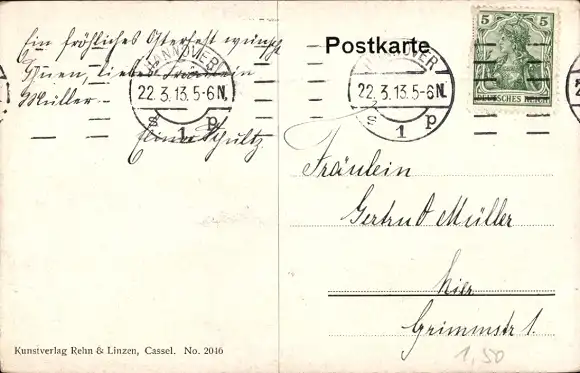 Ein fröhliches Osterfest wünscht
Ihnen, liebes Fräulein
Müller
Schultz
Postkarte
HANNOVER
22.3.13.5-6N.
*S 1 p
HANNOVER
22.3.13.5-6N.
*S 1 p
5 5
DEUTSCHES REICH
Fräulein
Gertrud Müller
hier
Grimmstr 1.
1,50
Kunstverlag Rehn & Linzen, Cassel. No. 2046